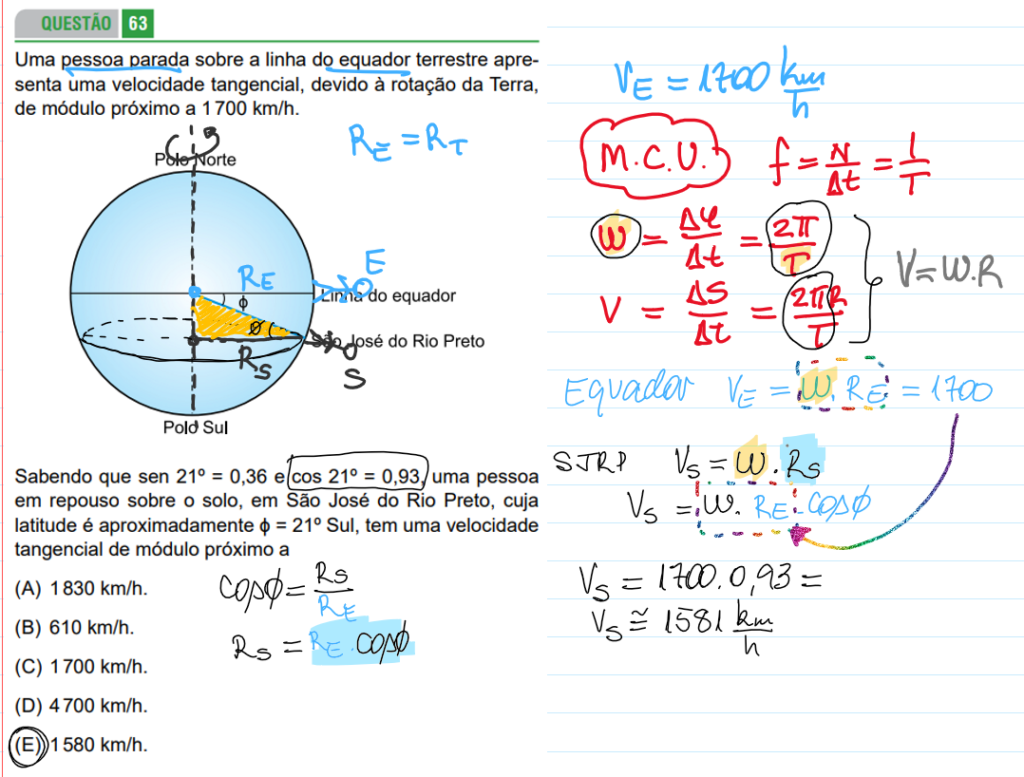 QUESTÃO 63
Uma pessoa parada sobre a linha do equador terrestre apre-
senta uma velocidade tangencial, devido à rotação da Terra,
de módulo próximo a 1 700 km/h.
R_E = R_T
Polo Norte
R_E
ϕ
E
Linha do equador
ϕ
São José do Rio Preto
R_S
S
Polo Sul
Sabendo que sen 21º = 0,36 e cos 21º = 0,93, uma pessoa
em repouso sobre o solo, em São José do Rio Preto, cuja
latitude é aproximadamente ϕ = 21º Sul, tem uma velocidade
tangencial de módulo próximo a
(A) 1 830 km/h.
(B) 610 km/h.
(C) 1 700 km/h.
(D) 4 700 km/h.
(E) 1 580 km/h.
cosϕ = R_S/R_E
R_S = R_E . cosϕ
V_E = 1700 km/h
M.C.U.
f = N/Δt = 1/T
W = Δφ/Δt = 2π/T
V = ΔS/Δt = 2πR/T
V = W.R
Equador V_E = W. R_E = 1700
SJRP V_S = W . R_S
V_S = W. R_E . cosϕ
V_S = 1700.0,93 =
V_S ≅ 1581 km/h